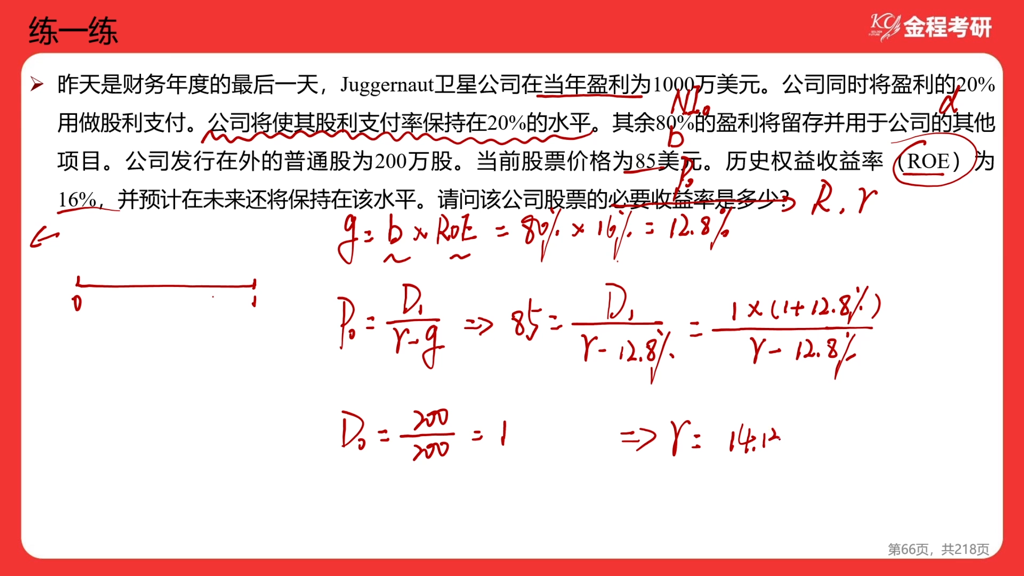 练一练
金程考研
昨天是财务年度的最后一天，Juggernaut卫星公司在当年盈利为1000万美元。公司同时将盈利的20%
用做股利支付。公司将使其股利支付率保持在20%的水平。其余80%的盈利将留存并用于公司的其他
项目。公司发行在外的普通股为200万股。当前股票价格为85美元。历史权益收益率（ROE）为
16%，并预计在未来还将保持在该水平。请问该公司股票的必要收益率是多少？
NI₀
d
b
P₀
R, r
g = b × ROE = 80% × 16% = 12.8%
0 1
P₀ = D₁ / (r - g) ⇒ 85 = D₁ / (r - 12.8%) = 1 × (1 + 12.8%) / (r - 12.8%)
D₀ = 200 / 200 = 1 ⇒ r = 14.12
第66页，共218页